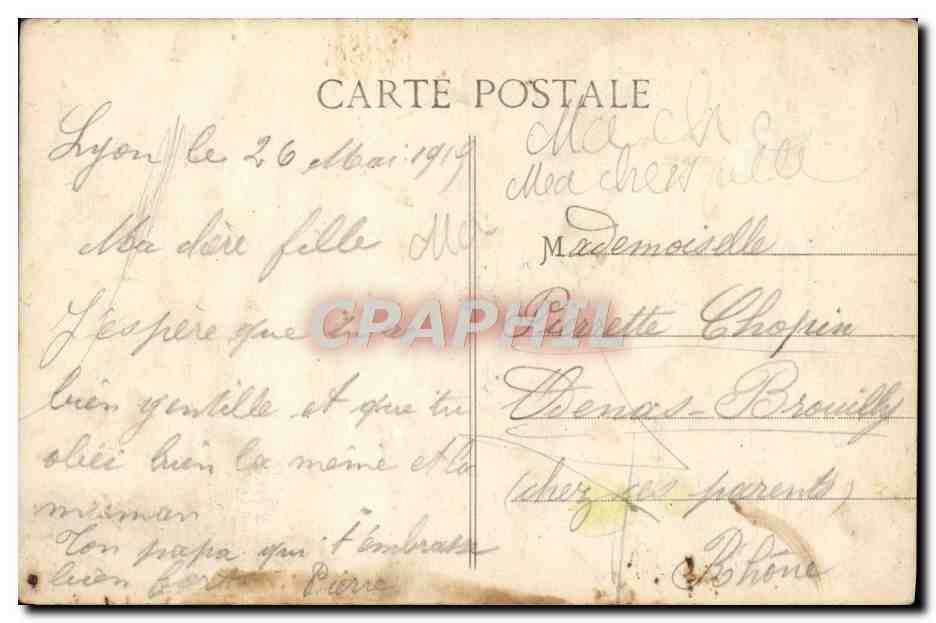 CARTE POSTALE
Lyon le 26 Mai 1919
Ma chère fille
J'espère que tu es
bien gentille et que tu
obéi bien la mémé et la
maman
Ton papa qui t'embrasse
bien fort Pierre
Ma ch
Ma cher
Mademoiselle
Pierrette Chopin
Odenas-Brouilly
(chez ses parents)
Rhône
CPAPHIL